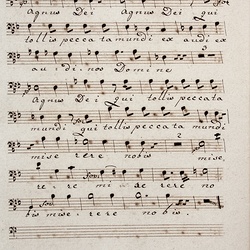 Agnus Dei Agnus Dei qui
tollis peccata mundi ex audi ex
au di nos Domine
Agnus Dei qui tollis peccata
mundi qui tollis peccata mundi
mise rere nobis mise
re re mi se rere no
bis mise rere nobis.